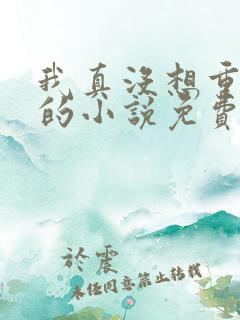 我真没想重
的小说免费
於震
未经同意禁止转载